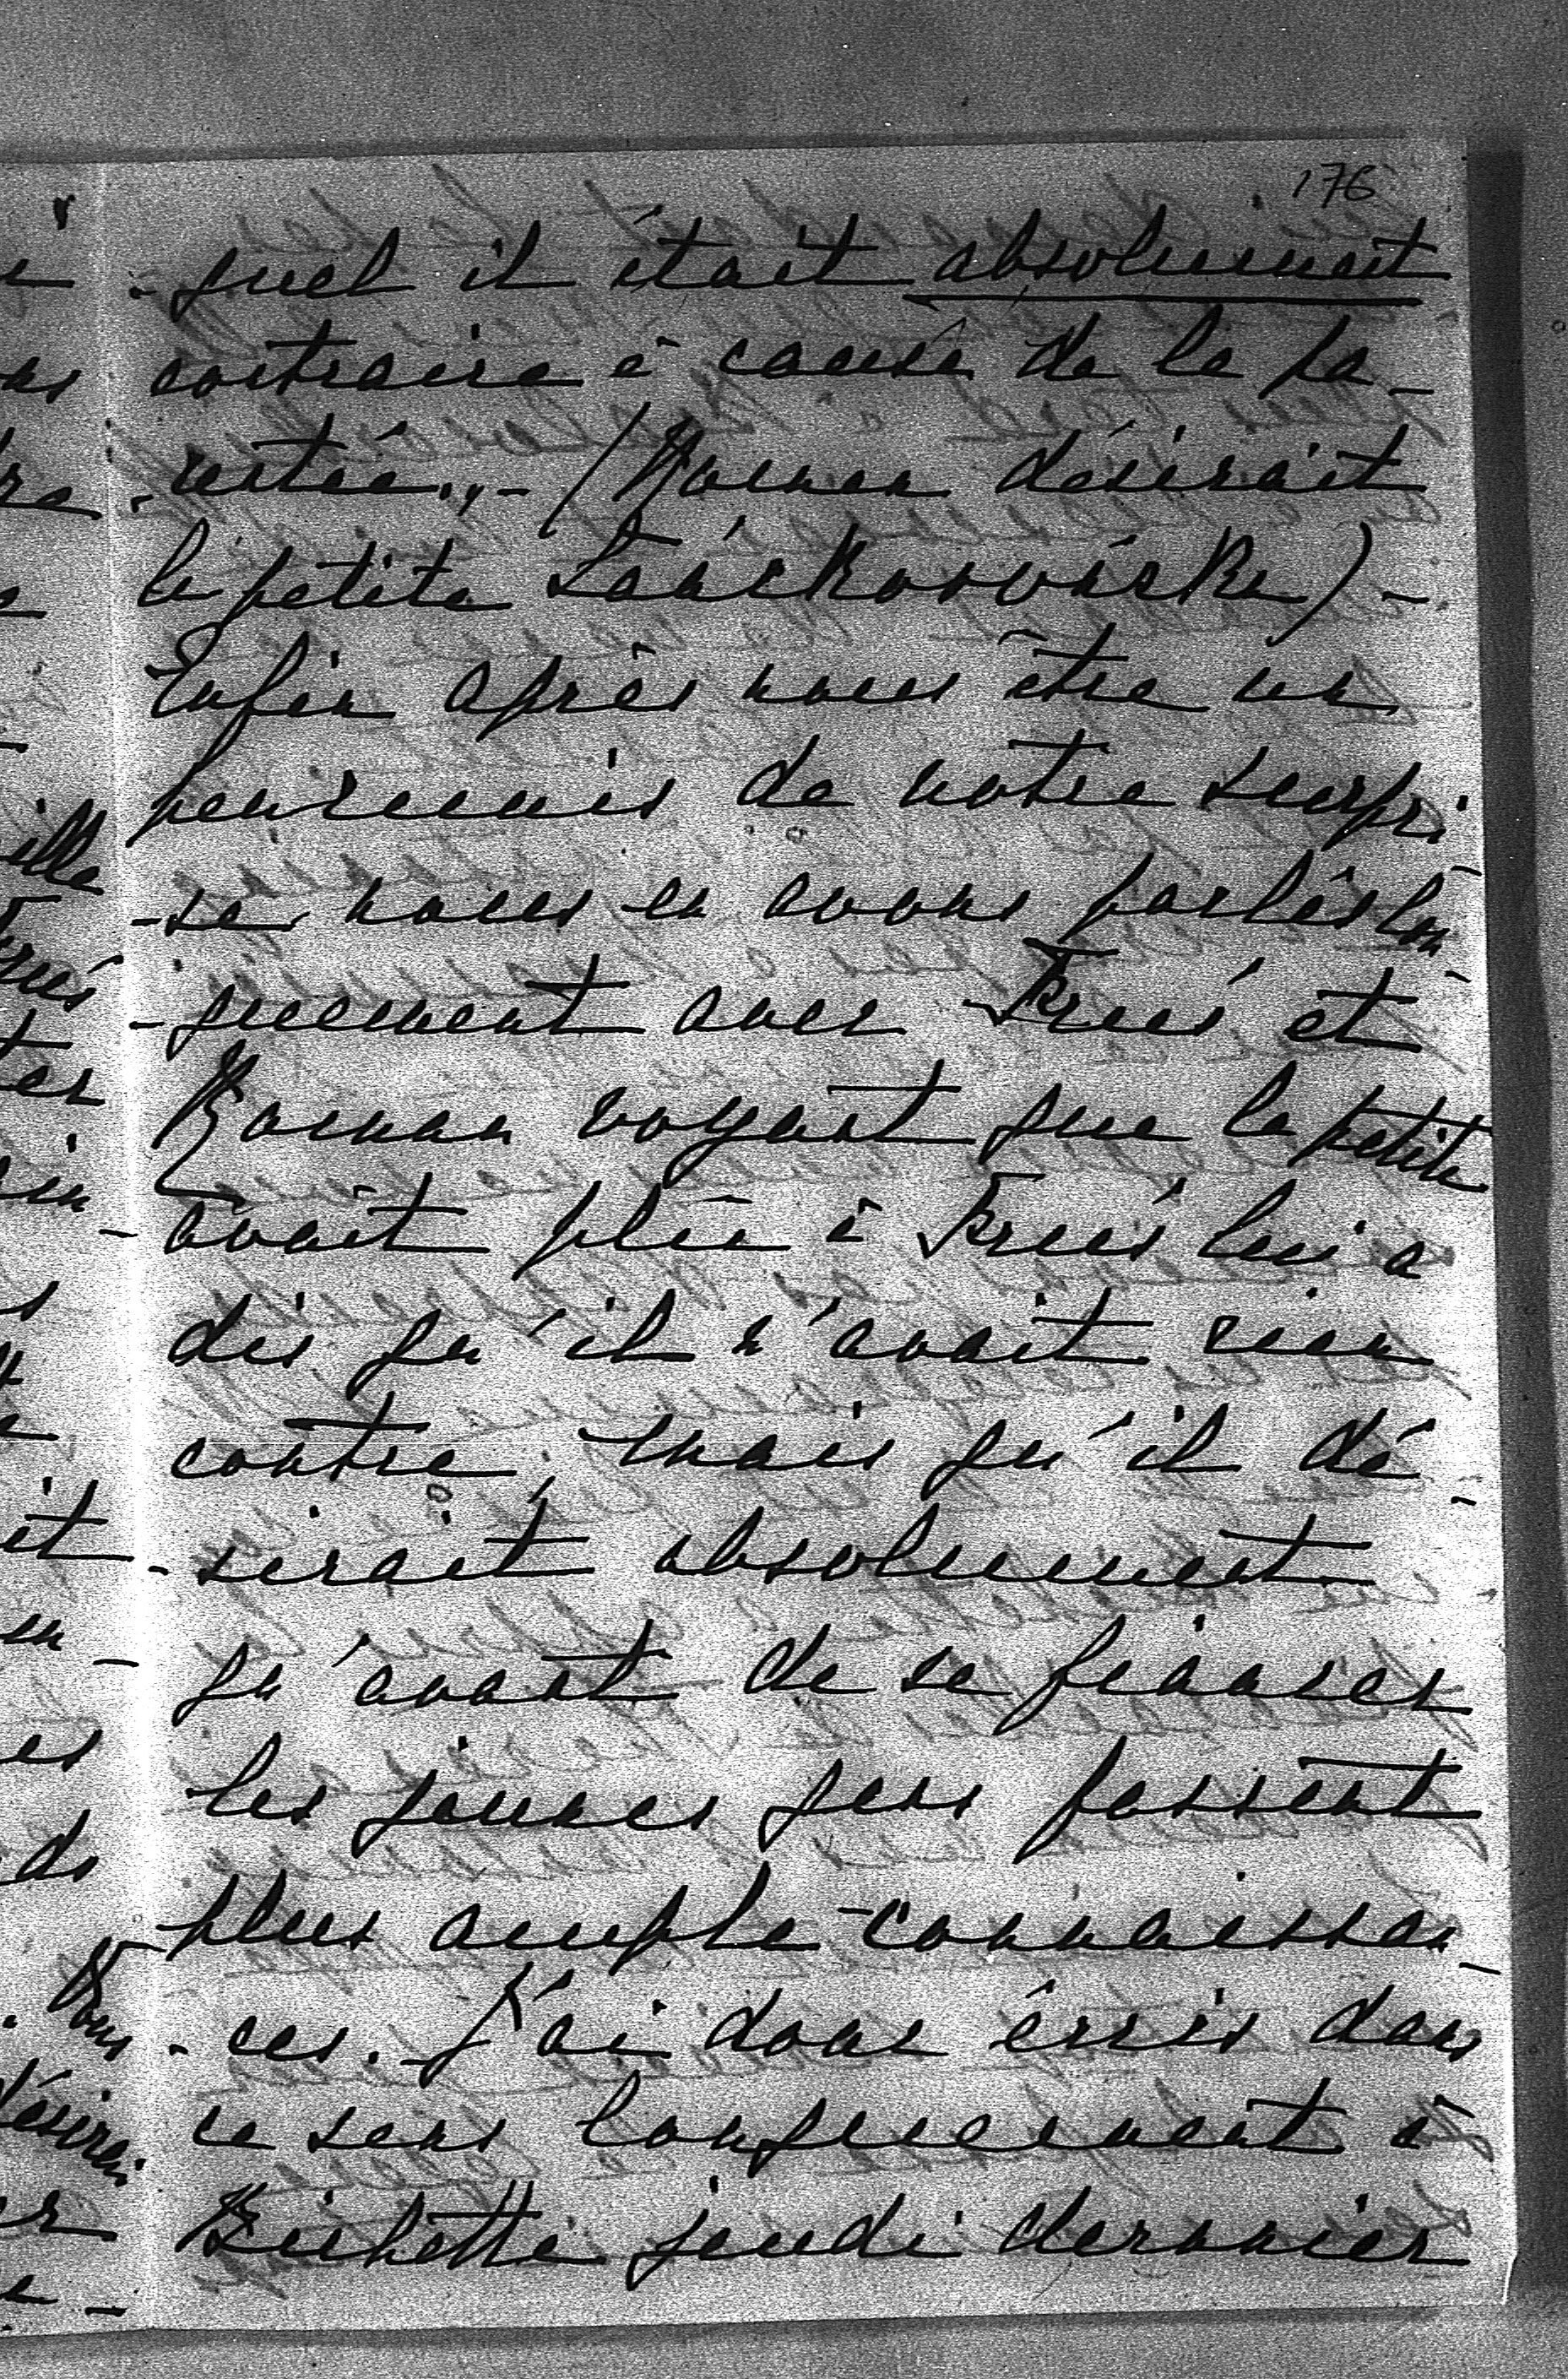 176
-quel il était absolument
contraire à cause de la pa-
-rentée.,- (Roman désirait
la petite Lanckorońska)-
Enfin après nous être un
peu remis de notre surpri-
-se nous en avons parlés lon-
-guement avec et
Roman voyant que la petite
avait plû à lui a
dis qu'il n'avait rien
contre, mais qu'il dé-
-sirait absolument
qu'avant de se fiancer
les jeunes gens fassent
plus ample connaissan-
-ces. J'ai donc écris dans
ce sens longuement à
jeudi dernier